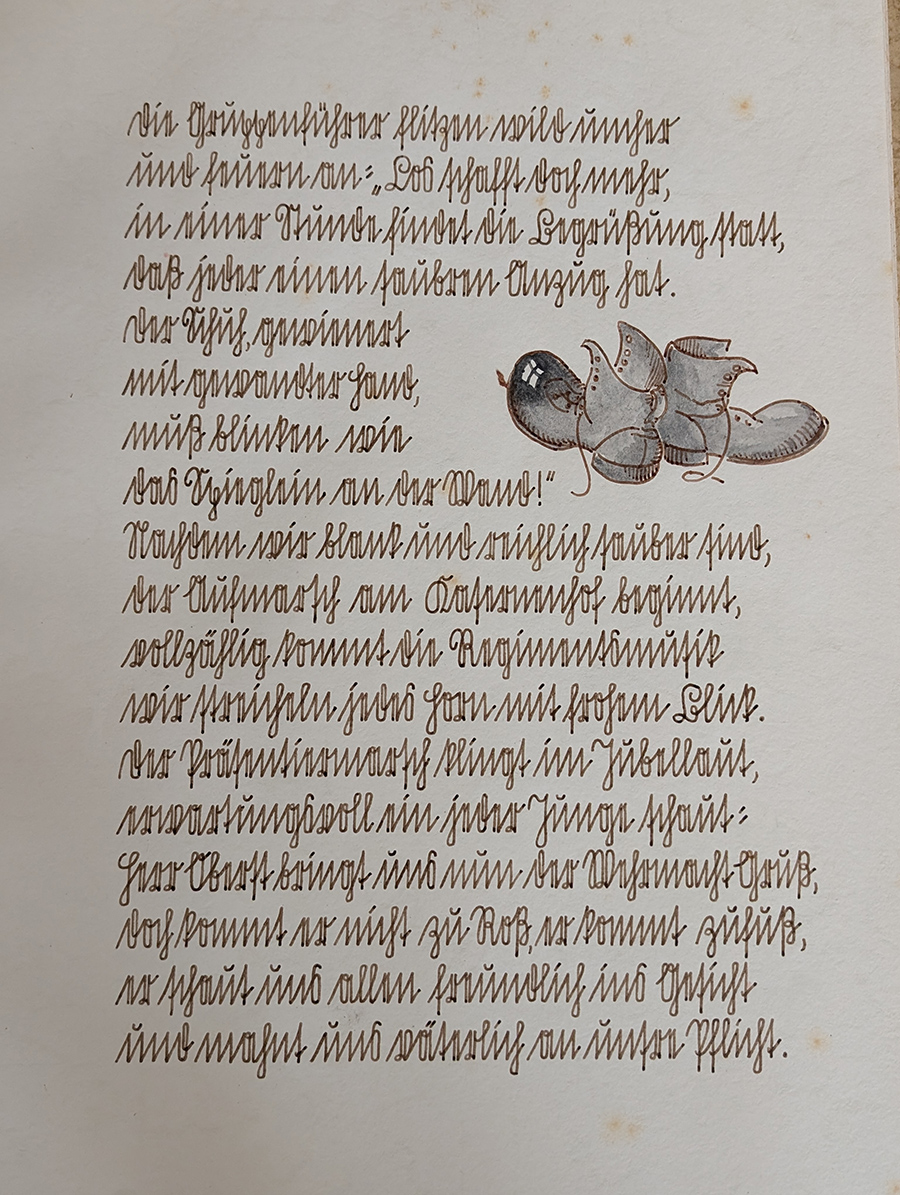 Die Gruppenführer flitzen wild umher
und feuern an: „Los schafft doch mehr,
in einer Stunde findet die Begrüßung statt,
daß jeder einen saubren Anzug hat.
Der Schuh, gewienert
mit gewandter Hand,
muß blinken wie
das Spieglein an der Wand!“
Nachdem wir blank und reichlich sauber sind,
der Aufmarsch am Kasernenhof beginnt,
vollzählig kommt die Regimentsmusik
wir streicheln jedes Horn mit frohem Blick.
Der Präsentiermarsch klingt im Jubellaut,
erwartungsvoll ein jeder Junge schaut:
Herr Oberst bringt uns nun der Wehrmacht Gruß,
doch kommt er nicht zu Roß, er kommt zufuß,
er schaut uns allen freundlich ins Gesicht
und mahnt uns väterlich an unsre Pflicht.